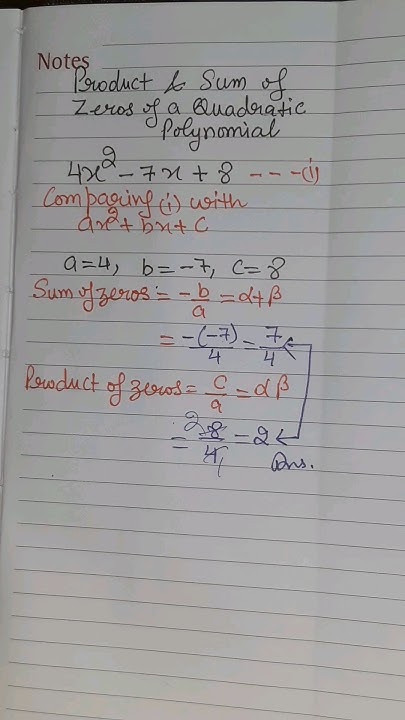 Notes
Product & Sum of
Zeros of a Quadratic
Polynomial
4x² - 7x + 8 - - - (i)
Comparing (i) with
ax² + bx + c
a = 4, b = -7, c = 8
Sum of zeros = -b/a = α+β
= -(-7)/4 = 7/4
Product of zeros = c/a = αβ
= 8/4 = 2
Ans.